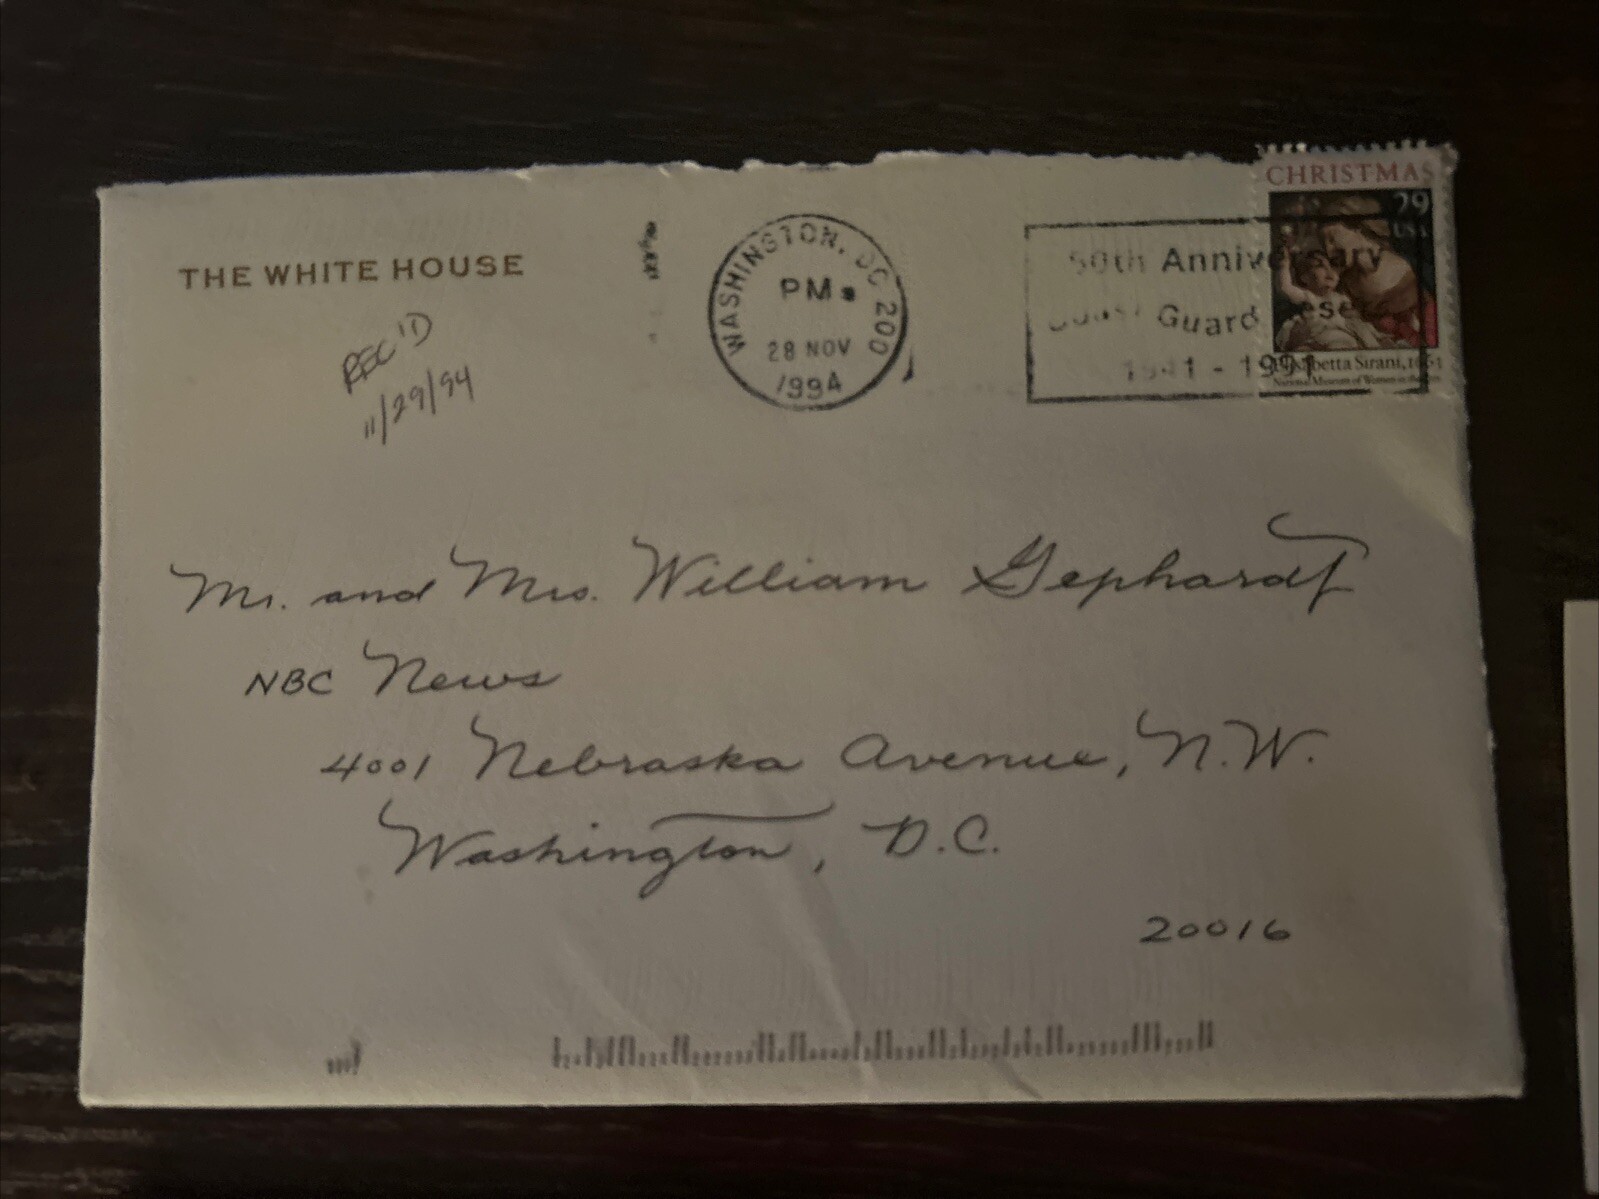 THE WHITE HOUSE
REC'D
11/29/94
WASHINGTON, DC 200
PM
28 NOV
1994
50th Anniversary
Coast Guard Rese
1941 - 1991
CHRISTMAS
29
USA
Elisabetta Sirani, 1663
National Museum of Women in the
Mr. and Mrs. William Gephardt
NBC News
4001 Nebraska Avenue, N.W.
Washington, D.C.
20016